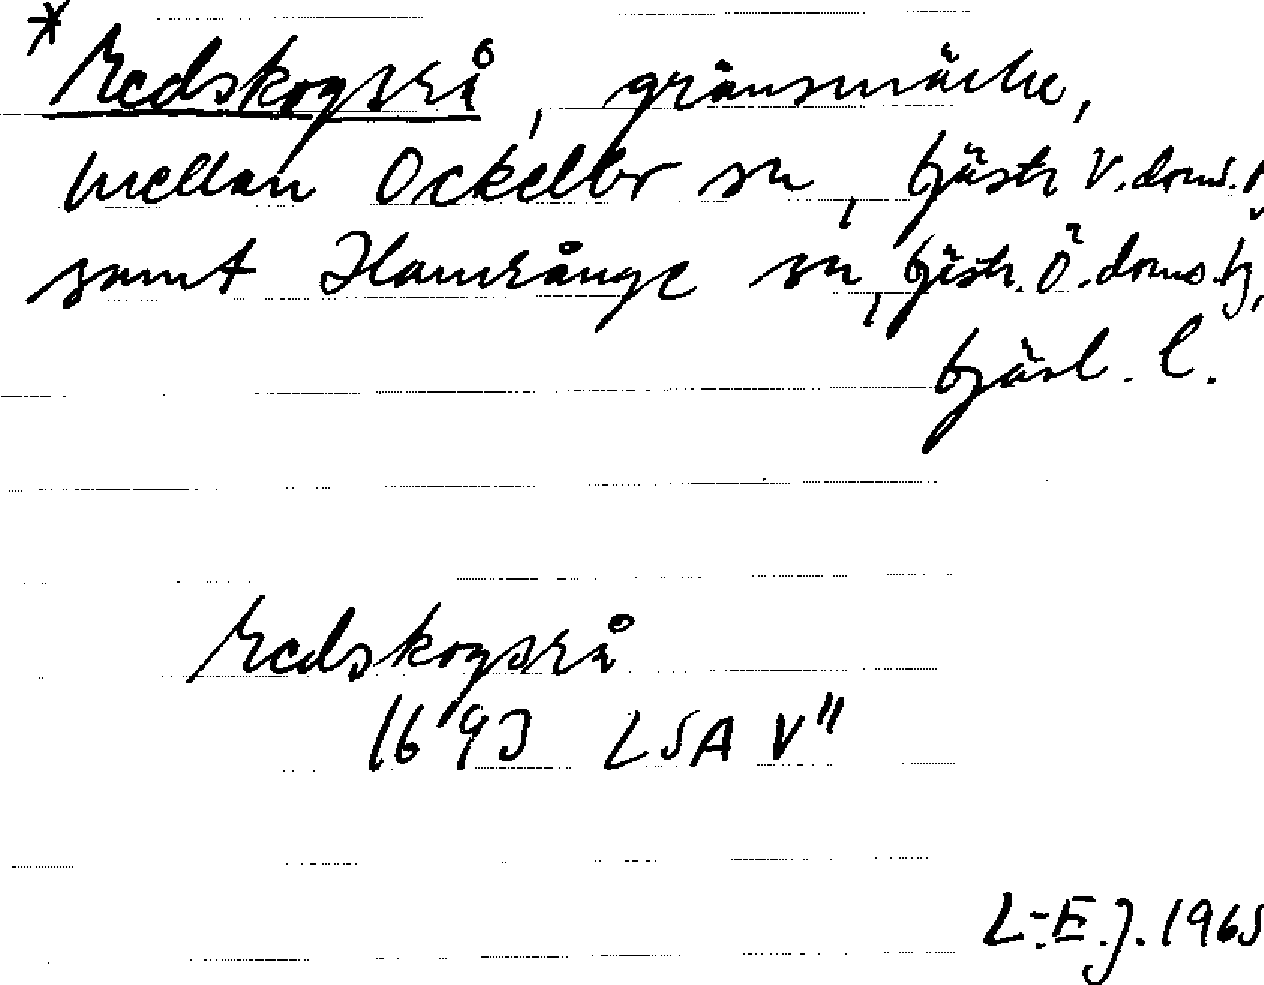 * Redskogsrå, gränsmärke,
mellan Ockelbo sn, Gästr V. doms.h,
samt Hamrånge sn, Gästr. Ö. doms.h,
Gävl. l.
Redskogsrå
1693 LSA V"
L-E.J. 1965